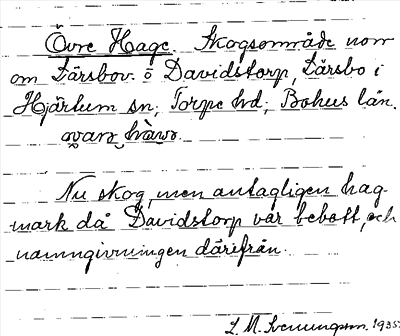 Övre Hage. Skogsområde norr
om Färsbov. o Davidstorp, Färsbo i
Hjärtum sn; Torpe hd; Bohus län.
Nu skog, men antagligen hag-
mark då Davidstorp var bebott, och
namngivningen därifrån.
L. M. Svenungsson. 1935.